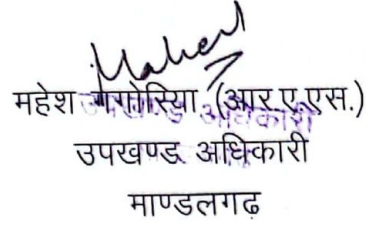 महेश गगोरिया (आर.ए.एस.)
उपखण्ड अधिकारी
उपखण्ड अधिकारी
माण्डलगढ़